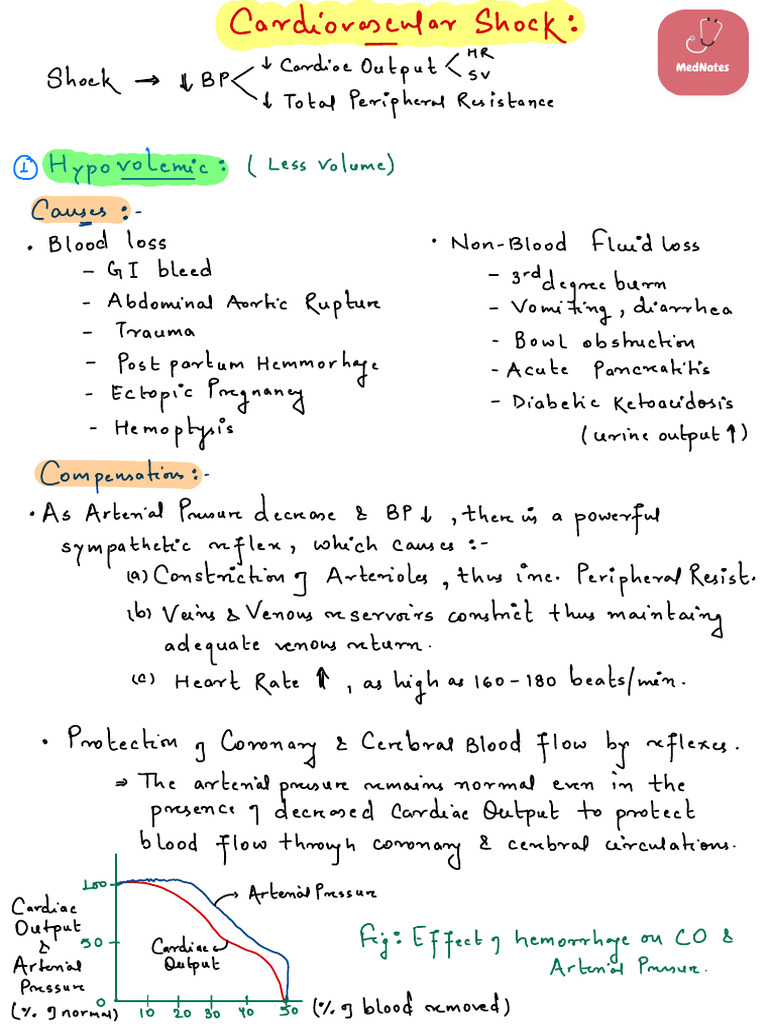 Cardiovascular Shock:
MedNotes
Shock → ↓ BP
↓ Cardiac Output
HR
SV
↓ Total Peripheral Resistance
① Hypovolemic: (Less Volume)
Causes:-
• Blood loss
– GI bleed
– Abdominal Aortic Rupture
– Trauma
– Post partum Hemmorhage
– Ectopic Pregnancy
– Hemoptysis
• Non-Blood Fluid loss
– 3rd degree burn
– Vomiting, diarrhea
– Bowl obstruction
– Acute Pancreatitis
– Diabetic Ketoacidosis
(urine output ↑)
Compensations:-
• As Arterial Pressure decrease & BP↓, there is a powerful
sympathetic reflex, which causes:-
(a) Constriction of Arterioles, thus inc. Peripheral Resist.
(b) Veins & Venous reservoirs constrict thus maintaing
adequate venous return.
(c) Heart Rate ↑, as high as 160–180 beats/min.
• Protection of Coronary & Cerebral Blood flow by reflexes.
⇒ The arterial pressure remains normal even in the
presence of decreased Cardiac Output to protect
blood flow through coronary & cerebral circulations.
Cardiac
Output
&
Arterial
Pressure
(% of normal)
100
50
0
→ Arterial Pressure
Cardiac
Output
10 20 30 40 50 (% of blood removed)
Fig: Effect of hemorrhage on CO &
Arterial Pressure.